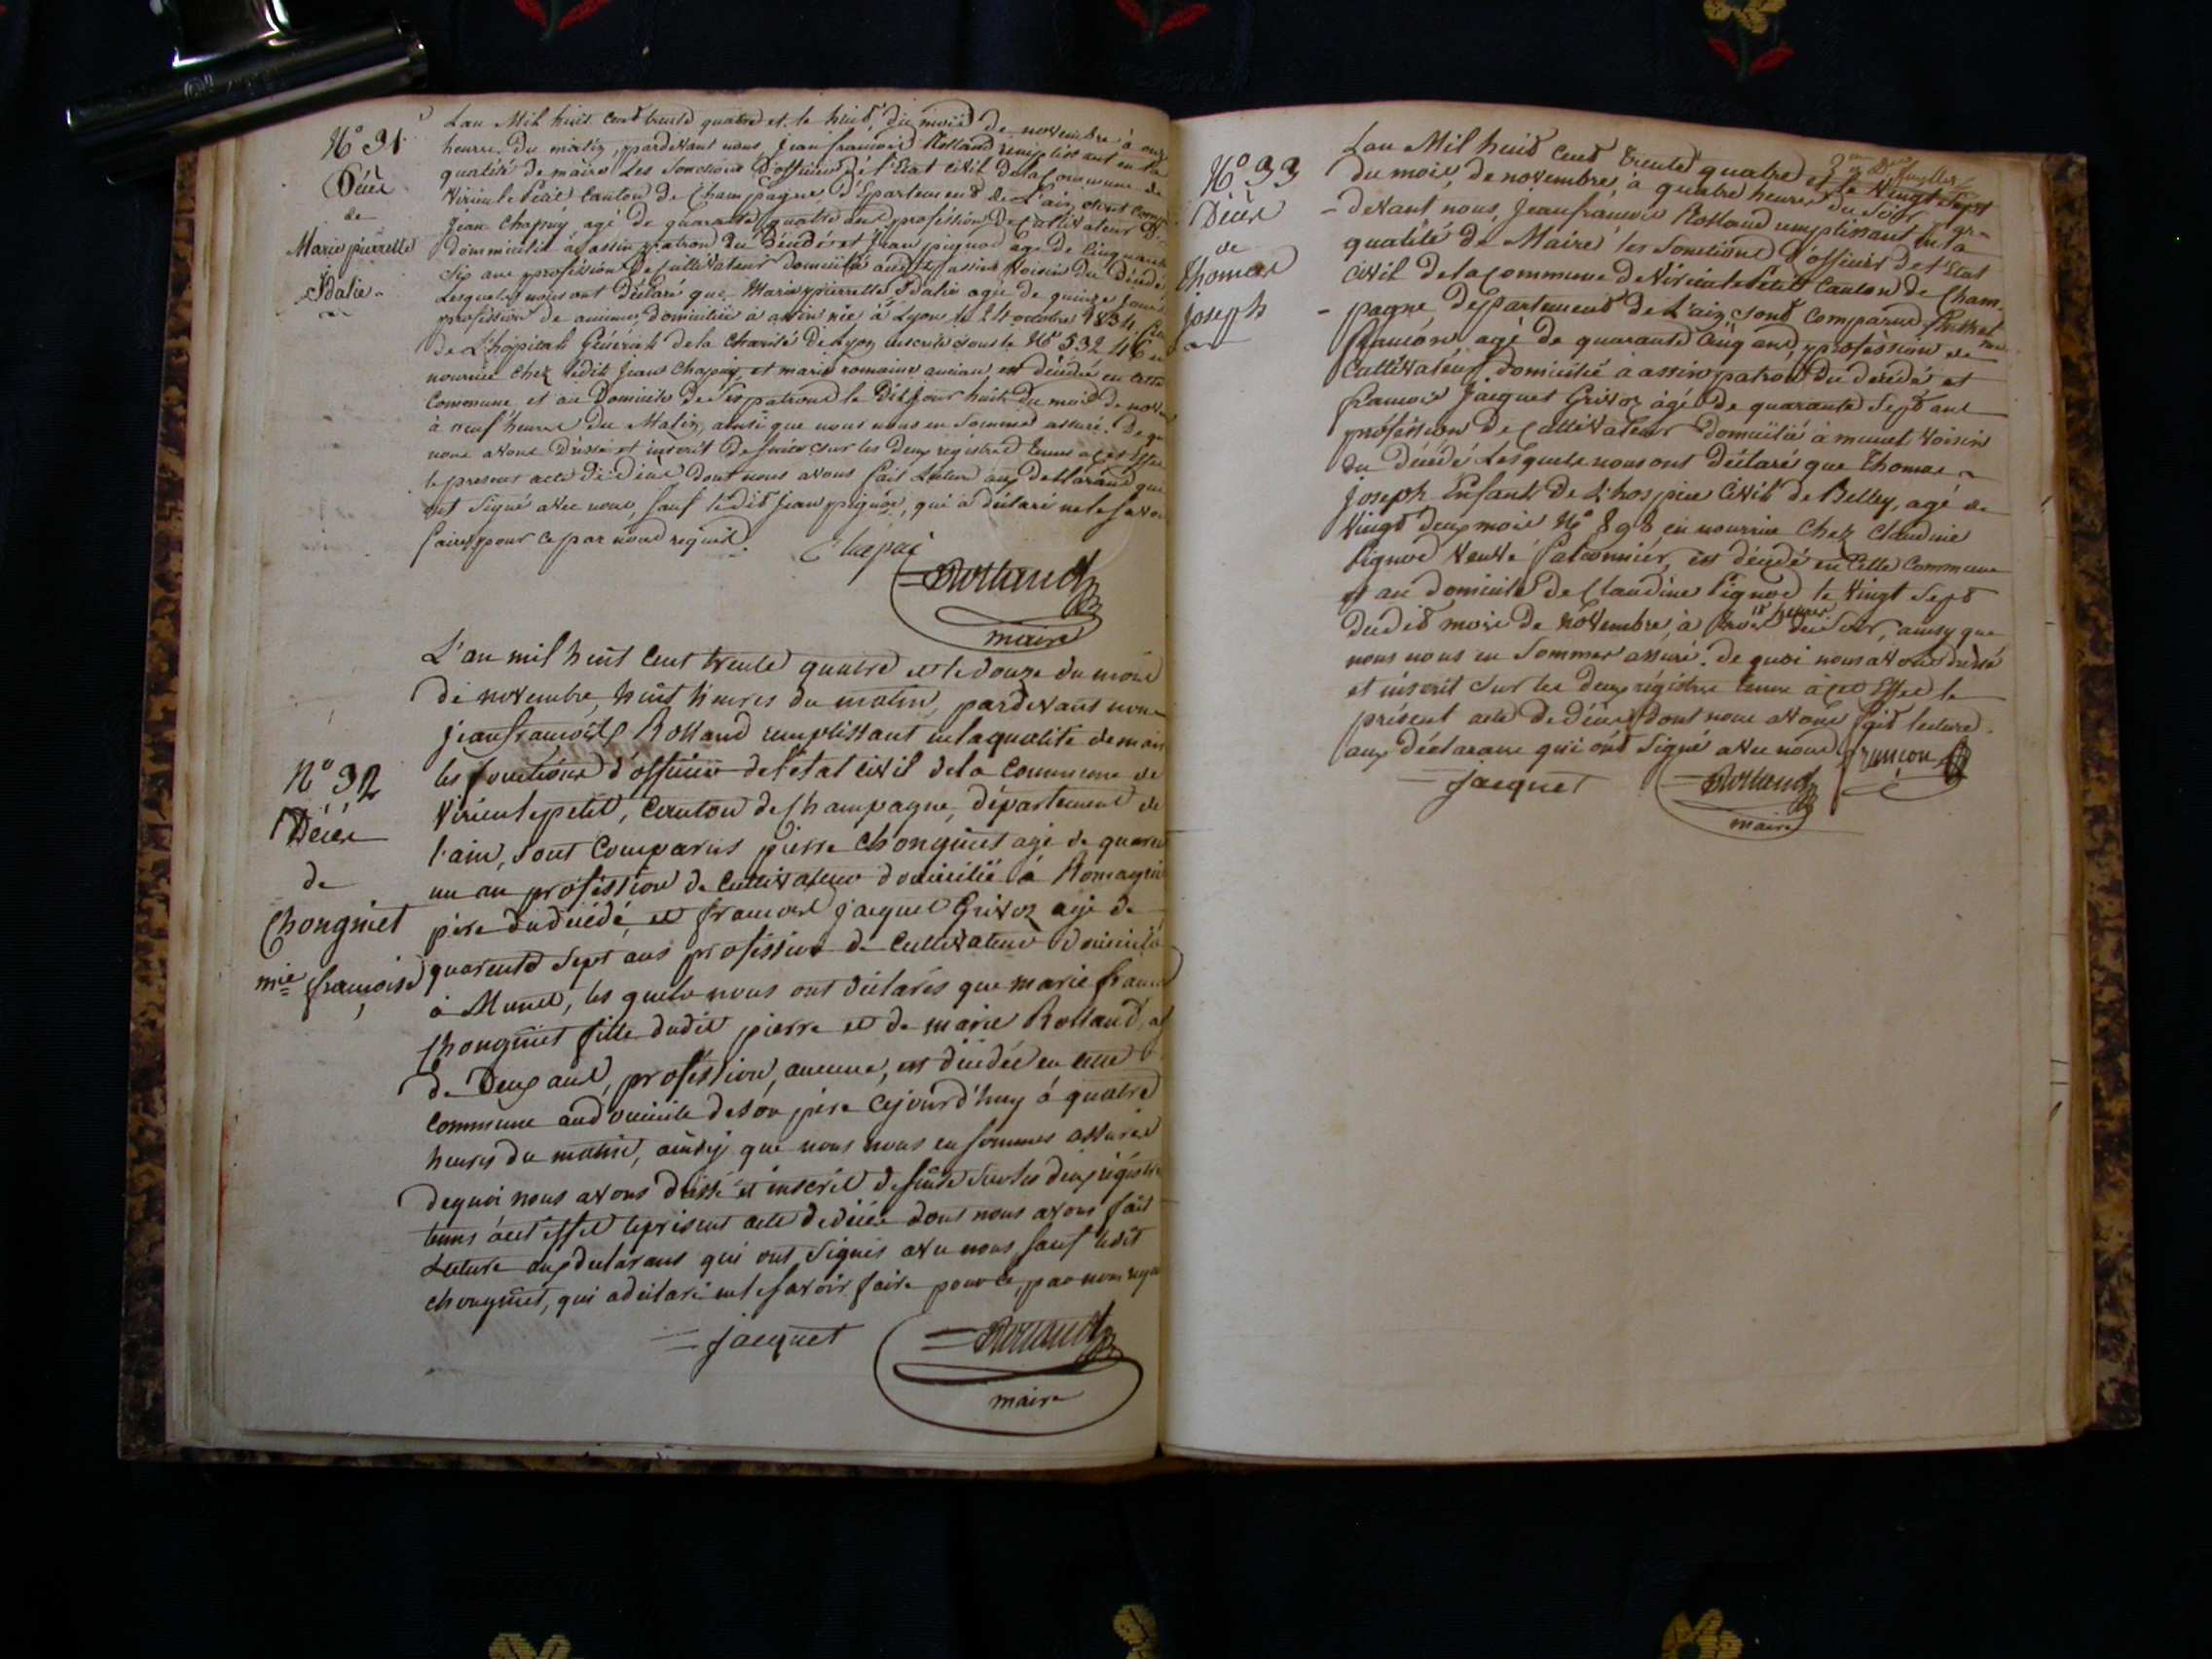 N° 31
Décès
de
Marie pierrette
Idalie
Lan Mil huit cent trente quatre et le huit du mois de novembre à onze
heures du matin, pardevant nous Jean françois Rolland remplissant en la
qualité de maire Les fonctions D'officier de l'Etat civil de la Commune de
Virieu le Petit canton de Champagne, département de L'ain, sont comp
Jean Chapuy agé de quarante quatre ans profession De Cultivateur
dommicilié à assin patron du décédé et Jean pignod agé De Cinquante
Six ans profession De Cultivateur domicilié audit assin Voisin du Décédé
Lesquels nous ont Déclaré que Marie pierrette Idalie agée de quinze jours
profession de aucune, domiciliée à assin née à Lyon le 24 octobre 1834
de L'hopital Général de la Charité De Lyon inscrite sous le N° 532
nourrice chez ledit Jean Chapuy et marie romaine ancian est décédée en cette
Commune et au Domicile de Ses patrons le Dit jour huit du mois de nov
à neuf heures du Matin, ainsi que nous nous en Sommes assuré. De q
nous avons Dressé et inscrit De suite sur les deux régistres tenus a cet Effet
le present acte De Décès Dont nous avons fait Lecture aux Déclarans qui
ont Signé avec nous, sauf ledit Jean pignod, qui a déclaré ne le savoir
faire, pour ce par nous requis.
Chapui
Rolland
maire
N° 32
Décès
de
Chongniet
mie françoise
L'an mil huit cent trente quatre et le douze du mois
de novembre, huit heures du matin, pardevant nous
Jean françois Rolland remplissant en la qualité de maire
les fonctions d'officier de l'état civil de la Commune de
Virieu le petit, canton de Champagne, département de
l'ain, sont Comparus pierre Chongniet agé de quarante
un an profession de Cultivateur domicilié à Romagnieu
père du décédé, et françois jacquet Grivoz agé de
quarente Sept ans profession de Cultivateur domicilié
à Munet, lesquels nous ont déclarés que marie françoise
Chongniet fille dudit pierre et de marie Rolland, a
de Deux ans, profession, aucune, est décédée en cette
Commune au domicile de son père Cejourd'huy à quatre
heures du matin, ainsy que nous nous en sommes assurés
de quoi nous avons dressé et inscrit de suite sur les deux régistres
tenus à cet effet le présent acte de décès dont nous avons fait
Lecture aux déclarans qui ont Signés avec nous, sauf ledit
Chongniet, qui a déclaré ne le savoir faire pour ce, par nous requis
jacquet
Rolland
maire
N° 33
Décès
de
Thomas
Joseph
Lan Mil huit cent trente quatre et le Vingt Sept
du mois de novembre, à quatre heures du Soir par
devant nous Jean françois Rolland remplissant en la
qualité de Maire les fonctions d'officier de l'Etat
civil de la Commune de Virieu le Petit Canton de Cham-
pagne, département de L'ain, sont comparus
françon agé de quarante cinq ans, profession de
Cultivateur, domicilié à assin patron du décédé et
françois Jacquet Grivoz agé de quarante Sept ans
profession de Cultivateur domicilié à munet voisin
du décédé Lesquels nous ont déclaré que Thomas
Joseph Enfant De L'hospice Civil de Belley, agé de
Vingt deux mois N° 898 en nourrice chez Claudine
Pignod Veuve Falconnier, est décédé en cette Commune
et au domicile de Claudine Pignod le Vingt Sept
dudit mois de novembre, à trois heures du Soir, ainsy que
nous nous en Sommes assuré. de quoi nous avons dressé
et inscrit sur les deux régistres tenus à cet Effet le
présent acte de décès dont nous avons fait lecture
aux déclarans qui ont signé avec nous
françon
jacquet
Rolland
maire